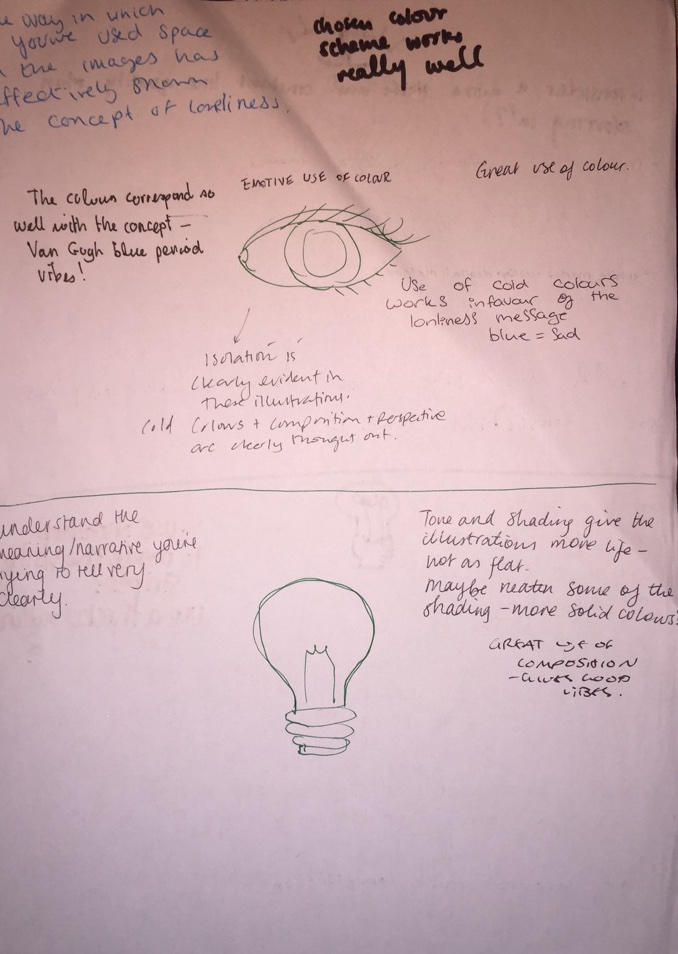 way in which
you've used space
the images has
effectively shown
he concept of loneliness.
chosen colour
scheme works
really well
The colours correspond so
well with the concept –
Van Gogh blue period
vibes!
EMOTIVE USE OF COLOUR
Great use of colour.
Use of cold colours
works infavour of the
lonliness message
blue = sad
Isolation is
clearly evident in
these illustrations.
Cold Colours + composition + perspective
are clearly thought out.
understand the
meaning/narrative you're
rying to tell very
clearly.
Tone and shading give the
illustrations more life –
not as flat.
maybe neaten some of the
shading – more solid colours?
GREAT USE OF
COMPOSITION
– GIVES GOOD
VIBES.